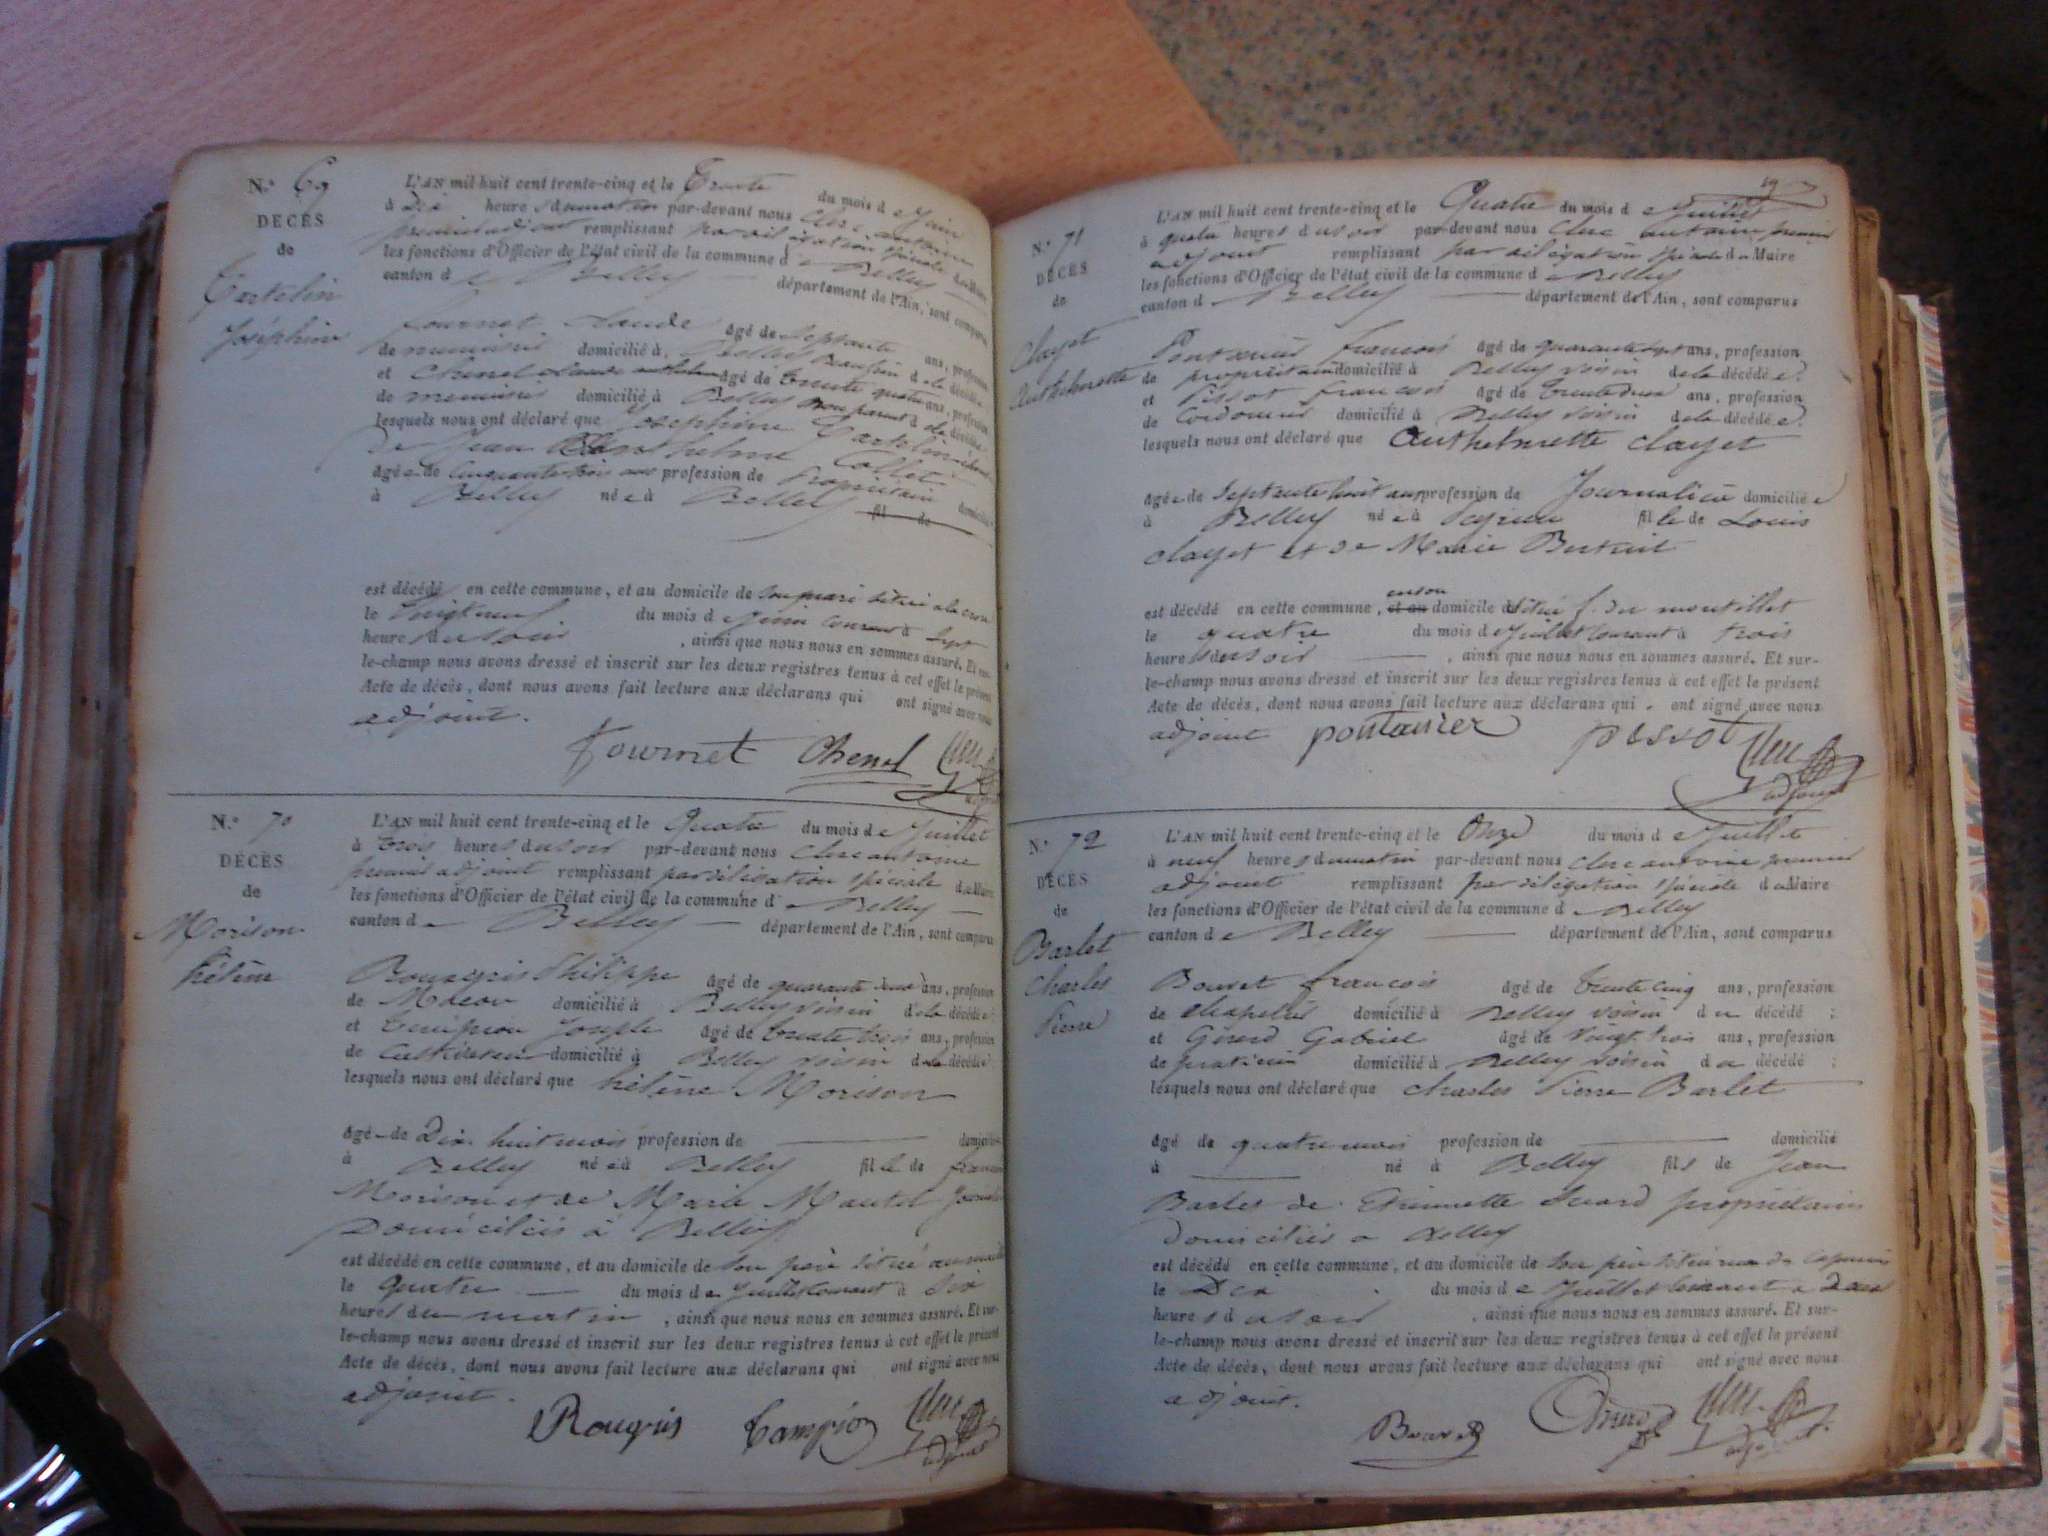 N.º 69
DÉCÈS
de
Tartelin
Joséphine
L'AN mil huit cent trente-cinq et le Trente du mois de Juin
à Dix heures du matin par-devant nous Clerc antoine
premier adjoint remplissant par délégation spéciale du Maire
les fonctions d'Officier de l'état civil de la commune de Belley
canton de Belley département de l'Ain, sont comparus
fournet Claude âgé de Septante ans, profession
de menuisier domicilié à Belley de la décédée
et Chenel Claude âgé de trente quatre ans, profession
de menuisier domicilié à Belley non parent de la décédée
lesquels nous ont déclaré que Josephine Tartelin
de Jean anthelme Collet
âgée de Cinquante trois ans profession de Propriétaire domiciliée
à Belley née à Belley fil de
est décédé en cette commune, et au domicile de son mari situé à la croix
le Vingt neuf du mois de Juin courant à Sept
heures du soir, ainsi que nous nous en sommes assuré. Et sur-
le-champ nous avons dressé et inscrit sur les deux registres tenus à cet effet le présent
Acte de décès, dont nous avons fait lecture aux déclarans qui ont signé avec nous
adjoint.
fournet Chenel Clerc adjoint
N.º 70
DÉCÈS
de
Morison
hélène
L'AN mil huit cent trente-cinq et le Quatre du mois de Juillet
à trois heures du soir par-devant nous Clerc antoine
premier adjoint remplissant par délégation spéciale du Maire
les fonctions d'Officier de l'état civil de la commune de Belley
canton de Belley département de l'Ain, sont comparus
Rougris Philippe âgé de quarante ans, profession
de Macon domicilié à Belley voisin de la décédée
et Joseph âgé de trente trois ans, profession
de Cultivateur domicilié à Belley voisin de la décédée
lesquels nous ont déclaré que hélène Morison
âgée de Dix huit mois profession de domiciliée
à Belley née à Belley fille de francois
Morison et de Marie Mautel
Domiciliés à Belley
est décédé en cette commune, et au domicile de son père situé
le quatre du mois de Juillet courant à Six
heures du matin, ainsi que nous nous en sommes assuré. Et sur-
le-champ nous avons dressé et inscrit sur les deux registres tenus à cet effet le présent
Acte de décès, dont nous avons fait lecture aux déclarans qui ont signé avec nous
adjoint.
Rougris Campion Clerc adjoint
N.º 71
DÉCÈS
de
Clayet
Anthelmette
L'AN mil huit cent trente-cinq et le Quatre du mois de Juillet
à quatre heures du soir par-devant nous Clerc antoine premier
adjoint remplissant par délégation spéciale du Maire
les fonctions d'Officier de l'état civil de la commune de Belley
canton de Belley département de l'Ain, sont comparus
Pontanier francois âgé de quarante sept ans, profession
de propriétaire domicilié à Belley voisin de la décédée.
et Pissot francois âgé de trente deux ans, profession
de Cordonnier domicilié à Belley voisin de la décédée.
lesquels nous ont déclaré que Anthelmette Clayet
âgée de Septante huit ans profession de Journalière domiciliée
à Belley née à Peyrieu fille de Louis
Clayet et de Marie Bertuit
est décédé en cette commune, en son domicile situé f. du montillet
le quatre du mois de Juillet courant à trois
heures du soir, ainsi que nous nous en sommes assuré. Et sur-
le-champ nous avons dressé et inscrit sur les deux registres tenus à cet effet le présent
Acte de décès, dont nous avons fait lecture aux déclarans qui ont signé avec nous
adjoint
pontanier pissot Clerc adjoint
N.º 72
DÉCÈS
de
Barlet
Charles
Pierre
L'AN mil huit cent trente-cinq et le Onze du mois de Juillet
à neuf heures du matin par-devant nous Clerc antoine premier
adjoint remplissant par délégation spéciale du Maire
les fonctions d'Officier de l'état civil de la commune de Belley
canton de Belley département de l'Ain, sont comparus
Bouvet francois âgé de trente cinq ans, profession
de Chapelier domicilié à Belley voisin du décédé :
et Girerd Gabriel âgé de Vingt trois ans, profession
de praticien domicilié à Belley voisin du décédé :
lesquels nous ont déclaré que Charles Pierre Barlet
âgé de quatre mois profession de domicilié
à né à Belley fils de Jean
Barlet de Etiennette propriétaires
Domiciliés à Belley
est décédé en cette commune, et au domicile de son père situé rue de Capucins
le Dix du mois de Juillet courant à Deux
heures du soir, ainsi que nous nous en sommes assuré. Et sur-
le-champ nous avons dressé et inscrit sur les deux registres tenus à cet effet le présent
Acte de décès, dont nous avons fait lecture aux déclarans qui ont signé avec nous
adjoint.
Bouvet Girerd Clerc adjoint